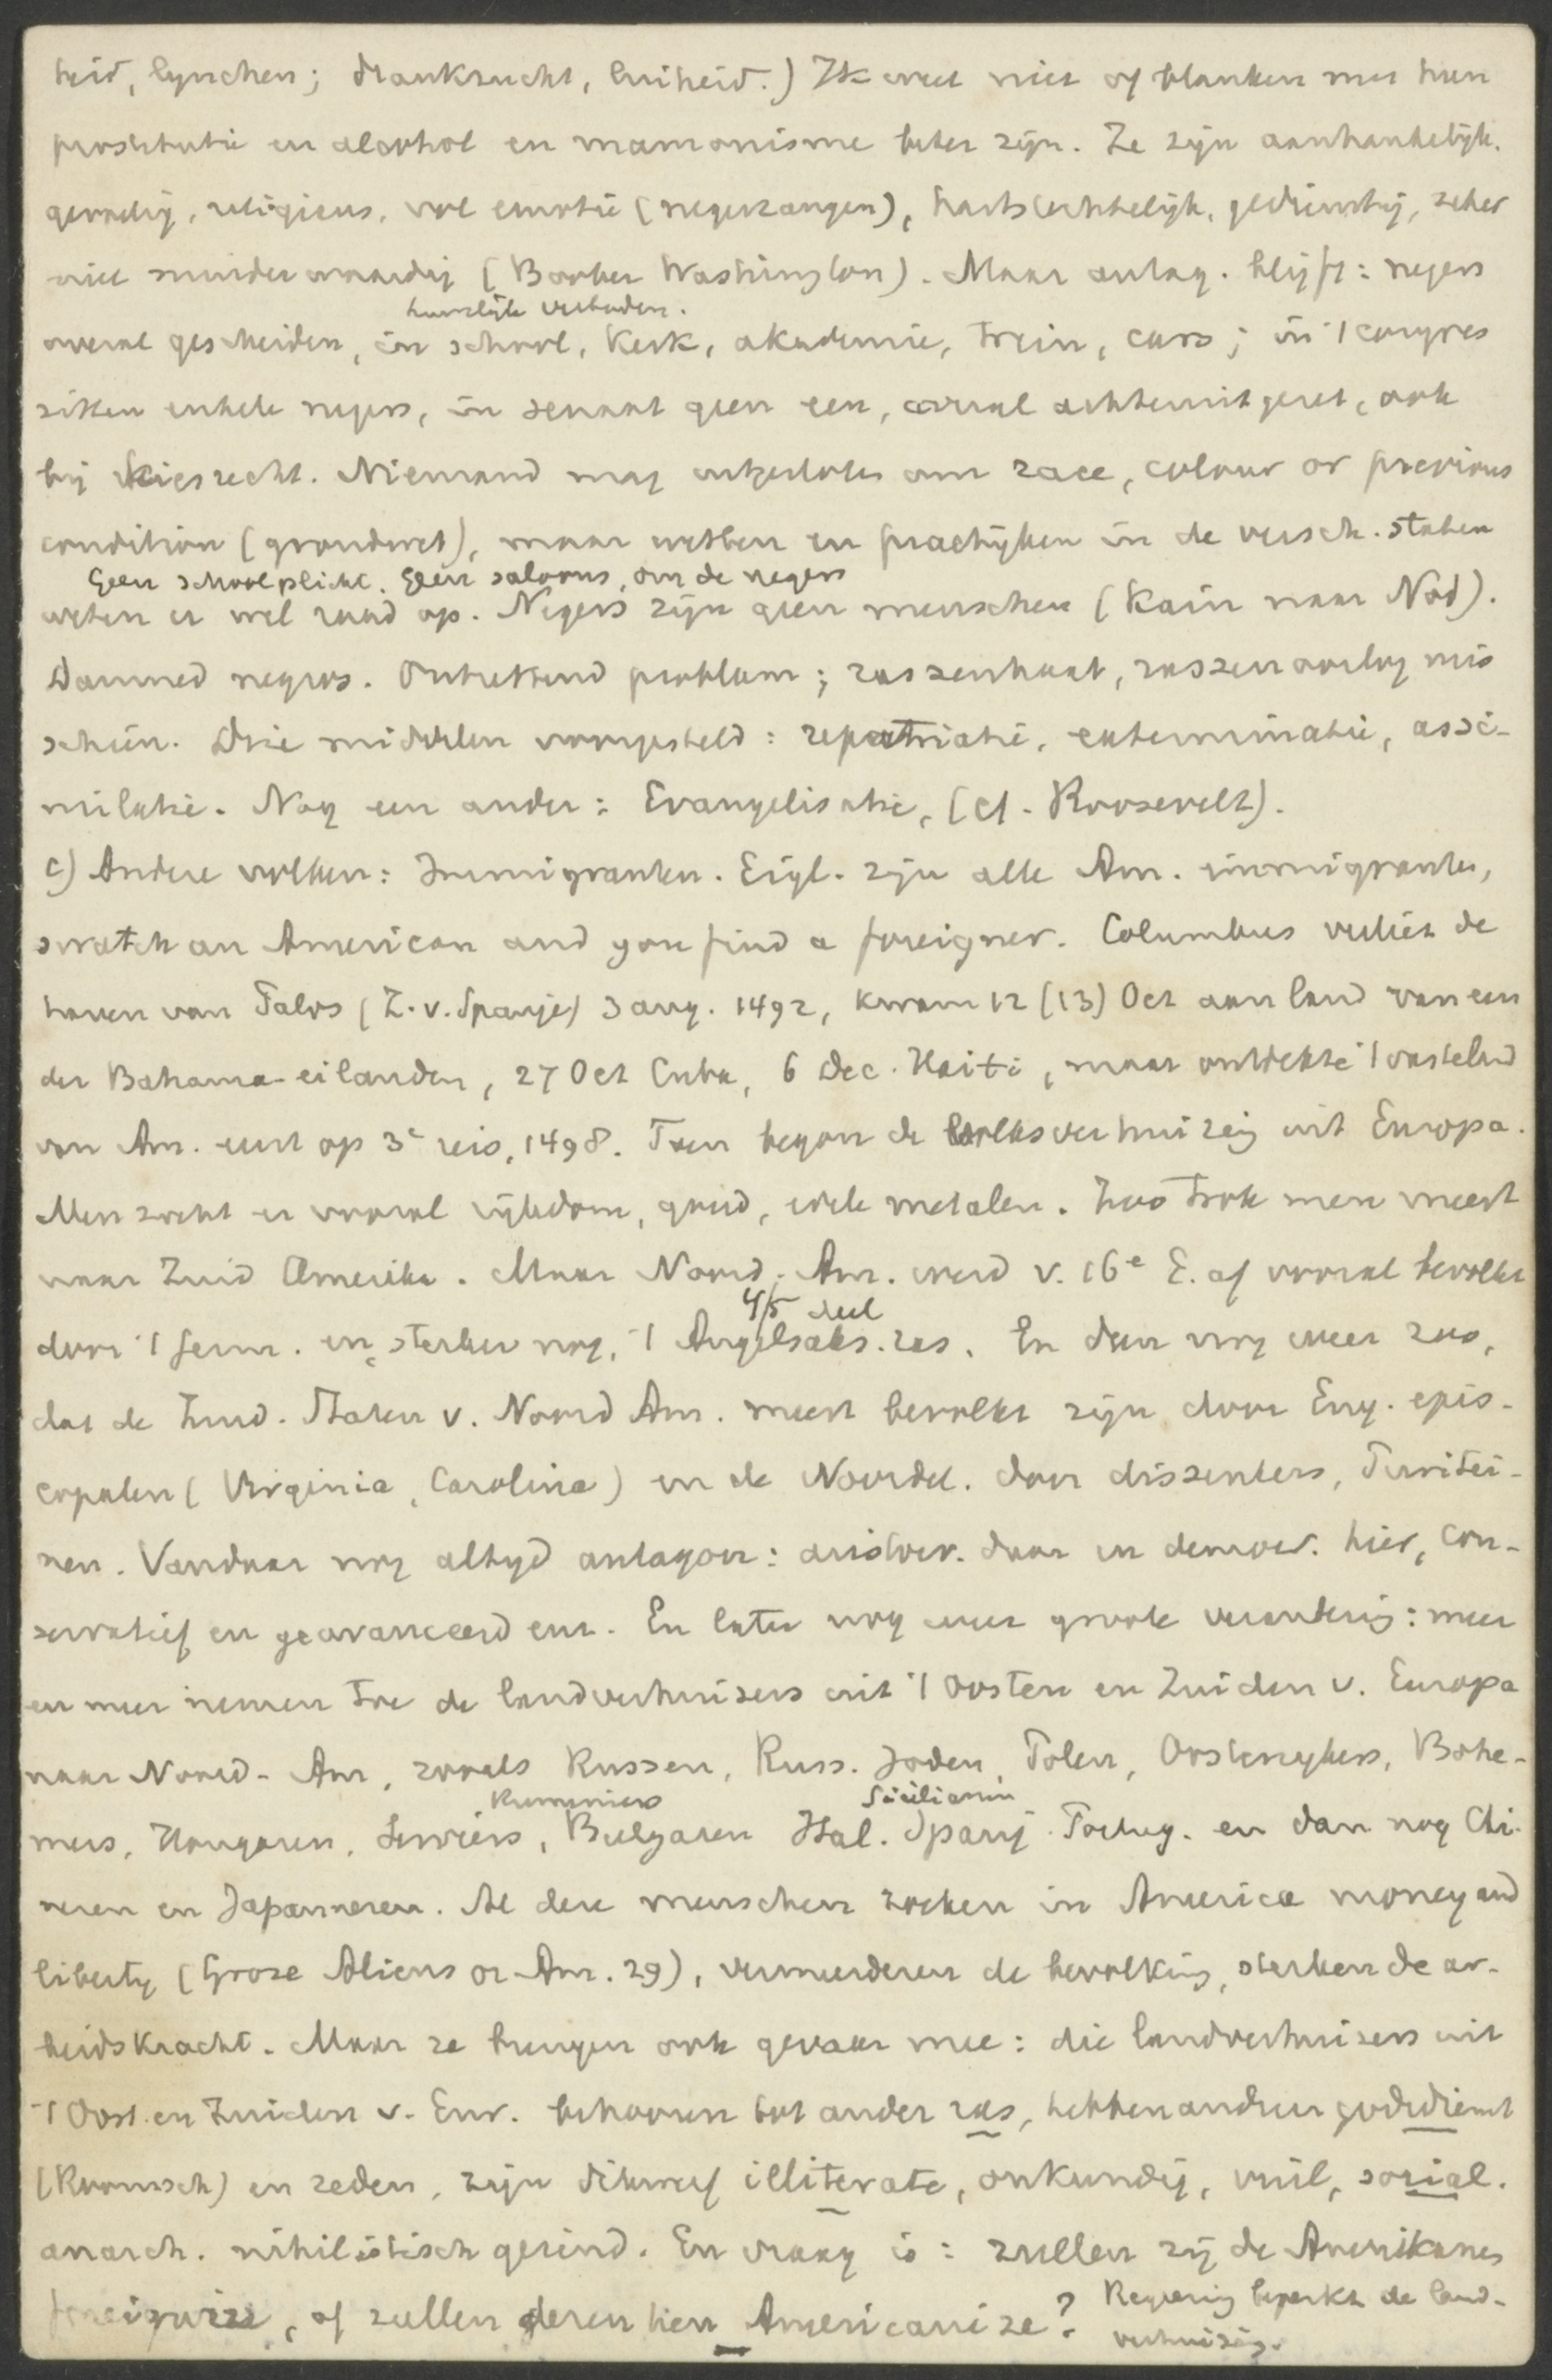 heid, lynchen; drankzucht, luiheid.) Ik weet niet of blanken met hun
prostitutie en alcohol en mammonisme beter zijn. Ze zijn aanhankelijk,
goedig, religieus, vol emotie (negerzangen), hartstochtelijk, gedienstig, zeker
niet minderwaardig (Booker Washington). Maar antag. blijft: negers
huwelijk verboden.
overal gescheiden, in school, kerk, akademie, trein, cars; in 't congres
zitten enkele negers, in senaat geen een, overal achteruitgezet, ook
bij kiesrecht. Niemand mag uitgesloten om race, colour or previous
condition (grondwet), maar wetten en practijken in de versch. staten
Geen schoolplicht. Geen saloons, om de negers
weten er wel raad op. Negers zijn geen menschen (Kain naar Nod).
Damned negros. Ontzettend probleem; rassenhaat, rassenoorlog mis
schien. Drie middelen voorgesteld: repatriatie, exterminatie, assi-
milatie. Nog een ander: Evangelisatie, (cf. Roosevelt).
c) Andere volken: Immigranten. Eigl. zijn alle Am. immigranten,
scratch an American and you find a foreigner. Columbus verliet de
haven van Palos (Z. v. Spanje) 3 aug. 1492, kwam 12 (13) Oct aan land van een
der Bahama-eilanden, 27 Oct Cuba, 6 Dec. Haiti, maar ontdekte 't vasteland
van Am. eerst op 3e reis, 1498. Toen begon de volksverhuizing uit Europa.
Men zocht er vooral rijkdom, goud, edele metalen. Zoo trok men meest
naar Zuid Amerika. Maar Noord-Am. werd v. 16e E. af vooral bevolkt
4/5 deel
door 't Germ. en sterker nog, 't Angelsaks. ras. En dan nog weer zoo,
dat de Zuid. Staten v. Noord Am. meest bevolkt zijn door Eng. epis-
copalen (Virginia, Carolina) en de Noordel. door dissenters, Puritei-
nen. Vandaar nog altijd antagon: aristocr. daar en democr. hier, con-
servatief en geavanceerd enz. En later nog weer groote verandering: meer
en meer nemen toe de landverhuizers uit 't Oosten en Zuiden v. Europa
naar Noord-Am, zooals Russen, Russ. Joden, Polen, Oostenrykers, Bohe-
Rumeniers Sicilianen
mers, Hongaren, Serviers, Bulgaren Ital. Spanj. Portug. en dan nog Chi-
nezen en Japanneezen. Al deze menschen zoeken in America money and
liberty (Grose Aliens or Am. 29), vermeerderen de bevolking, sterken de ar-
beidskracht. Maar ze brengen ook gevaar mee: die landverhuizers uit
't Oost. en Zuiden v. Eur. behooren tot ander ras, hebben anderen godsdienst
(Roomsch) en zeden, zijn dikwerf illiterate, onkundig, vuil, social.
anarch. nihilistisch gezind. En vraag is: zullen zij de Amerikanen
foreignize, of zullen dezen hen Americanize? Regeering beperkt de land-
verhuizing.